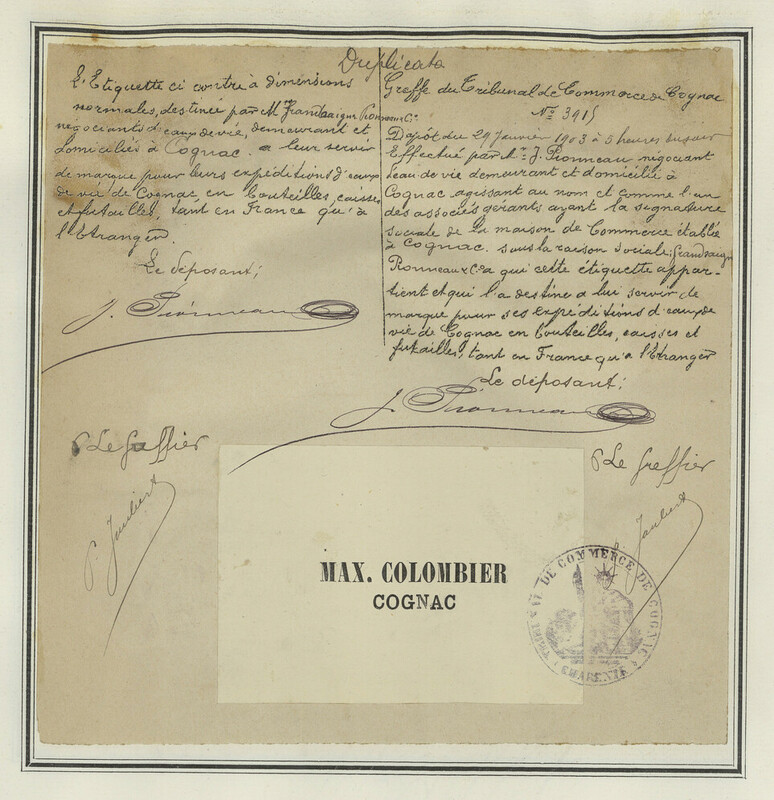 Duplicata
L'Etiquette ci contre à dimensions
normales, destinée par M Grandsaigne Pionneau & Cie
négociants d'eaux de vie, demeurant et
domiciliés à Cognac. a leur servir
de marque pour leurs expéditions d'eaux
de vie de Cognac en bouteilles, caisses
et futailles, tant en France qu'à
l'Etranger.
Le déposant;
J. Pionneau
P Le Greffier
P. Jaulient
Greffe du Tribunal de Commerce de Cognac
No 3915
Dépôt du 29 Janvier 1903 à 5 heures du soir
Effectué par Mr J. Pionneau negociant
d'eau de vie demeurant et domicilié à
Cognac agissant au nom et comme l'un
des associés gérants ayant la signature
sociale de la maison de Commerce établie
à Cognac. sous la raison sociale; Grandsaigne
Pionneau & Cie a qui cette étiquette appar-
tient et qui l'a destine a lui servir de
marque pour ses expéditions d'eaux de
vie de Cognac en bouteilles, caisses et
futailles, tant en France qu'a l'Etranger
Le déposant;
J. Pionneau
P Le Greffier
MAX. COLOMBIER
COGNAC
TRIBUNAL DE COMMERCE DE COGNAC
CHARENTE